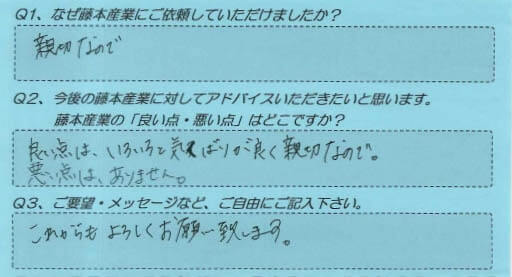 Q1、なぜ藤本産業にご依頼していただけましたか？
親切なので
Q2、今後の藤本産業に対してアドバイスいただきたいと思います。
藤本産業の「良い点・悪い点」はどこですか？
良い点は、いろいろと気くばりが良く親切なので。
悪い点は、ありません。
Q3、ご要望・メッセージなど、ご自由にご記入下さい。
これからもよろしくお願い致します。